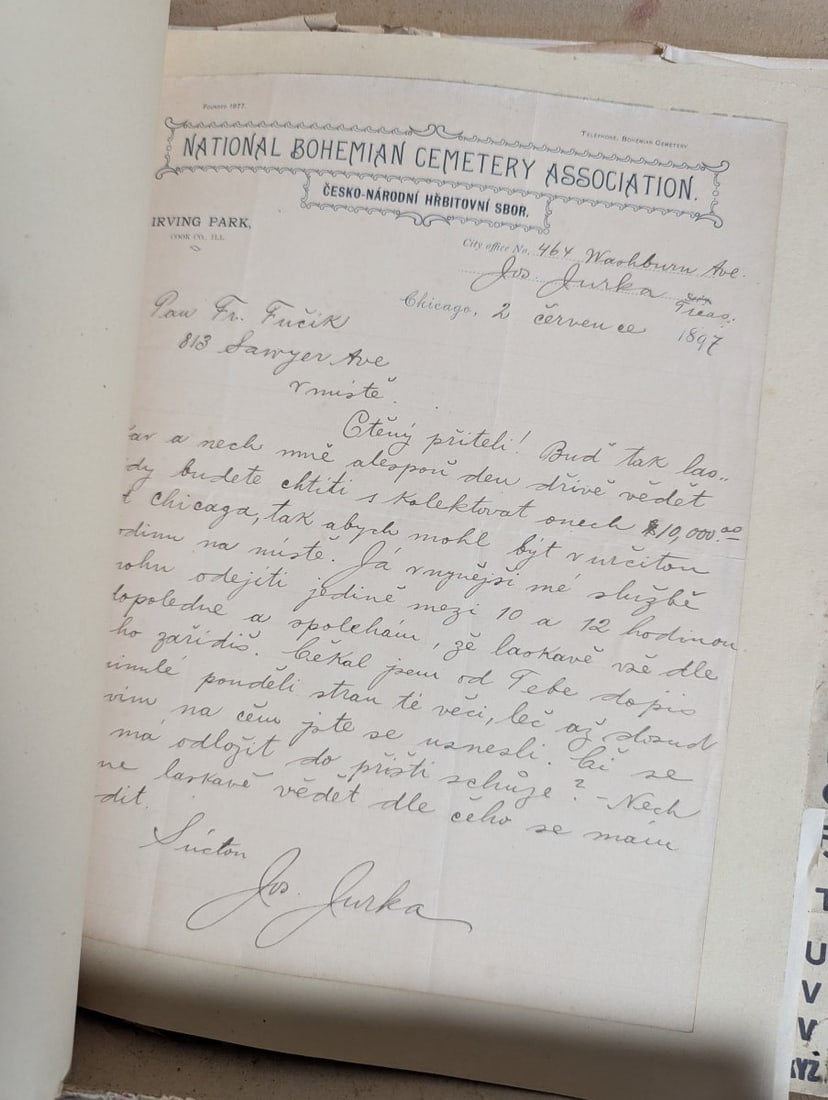 Founded 1877.
Telephone, Bohemian Cemetery
NATIONAL BOHEMIAN CEMETERY ASSOCIATION.
ČESKO-NÁRODNÍ HŘBITOVNÍ SBOR.
IRVING PARK,
COOK CO., ILL.
City office No. 464 Washburn Ave.
Jos. Jurka Treas.
Chicago, 2 července 1897
Pan Fr. Fučik
813 Sawyer Ave
v místě.
Ctěný příteli! Buď tak las-
kav a nech mně alespoň den dříve vědět
kdy budete chtíti skolektovat onech $10,000.00
t chicaga, tak abych mohl být v určitou
odinu na místě. Já v nynější mé službě
mohu odejíti jedině mezi 10 a 12 hodinou
dopoledne a spolehám, že laskavě vše dle
ho zařídíš. Čekal jsem od Tebe dopis
minulé pondělí stran té věci, leč až dosud
vím na čem jste se usnesli. Či se
má odložit do příští schůze? - Nech
ne laskavě vědět dle čeho se mám
dit.
S úctou
Jos. Jurka
T
U
V
V
XYZ